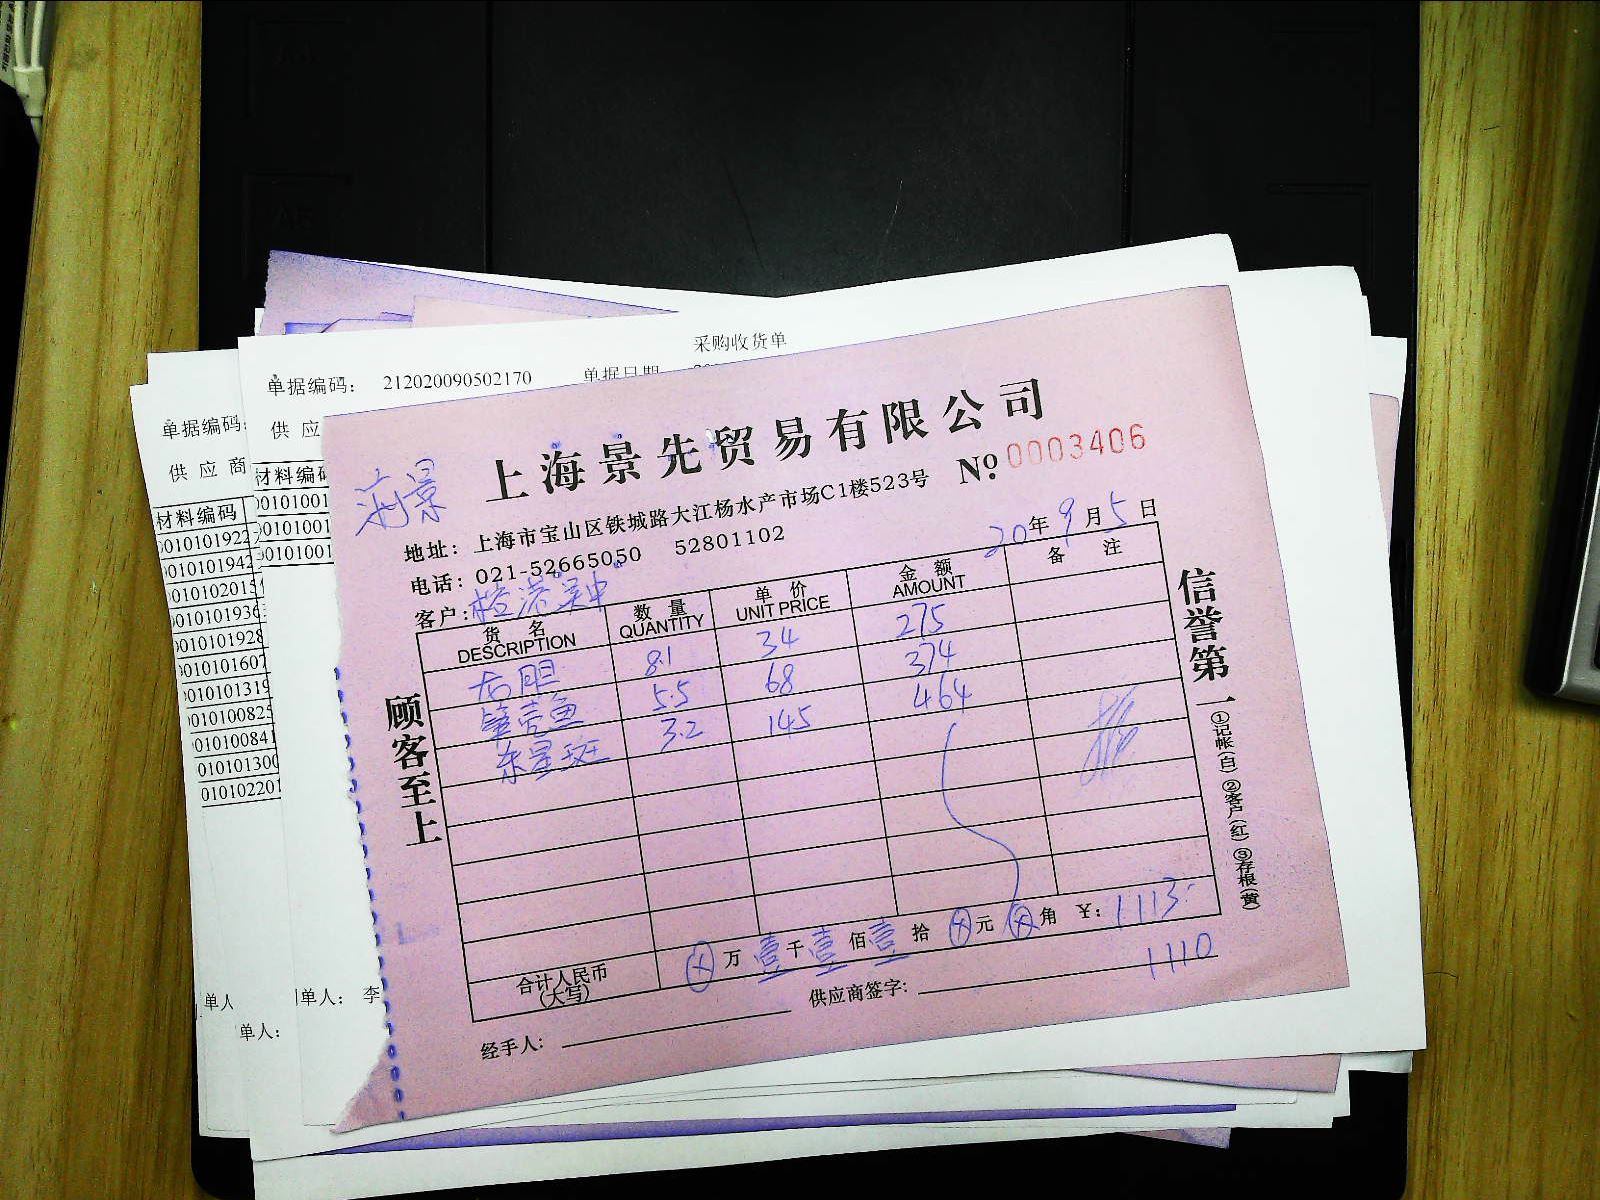 采购收货单
单据编码: 212020090502170 单据日期
供应
材料编码
00101001
0101001
0101001
单人: 李
单据编码:
供应商
材料编码
0010101922
0010101942
0010102015
0010101936
0010101928
0010101607
0010101319
0010100825
0010100841
0010101300
010102201
单人
单人:
上海景先贸易有限公司
№ 0003406
地址: 上海市宝山区铁城路大江杨水产市场C1楼523号
电话: 021-52665050 52801102
20年9月5日
客户:
货名 DESCRIPTION 数量 QUANTITY 单价 UNIT PRICE 金额 AMOUNT 备注
8.1 34 275
笋壳鱼 5.5 68 374
东星斑 3.2 145 464
合计人民币(大写) ⊗万壹千壹佰壹拾⊗元⊗角 ¥: 1113.
1110
经手人: 供应商签字:
顾客至上
信誉第一
①记帐(白) ②客户(红) ③存根(黄)